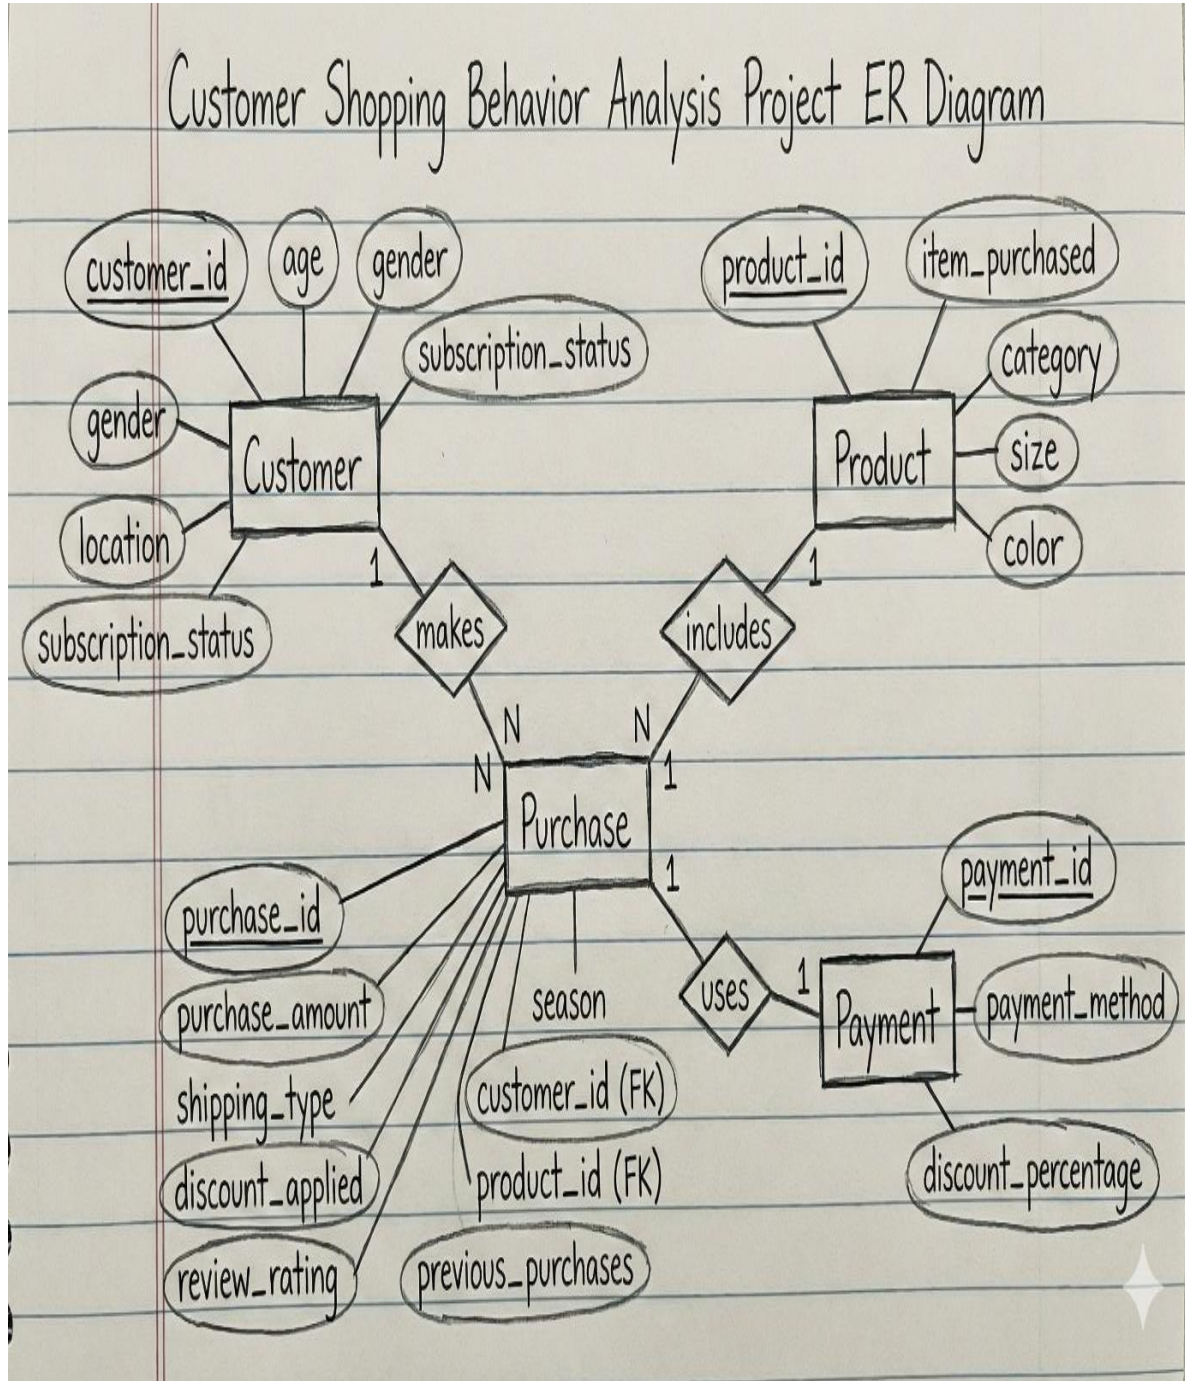 Customer Shopping Behavior Analysis Project ER Diagram
customer_id
age
gender
subscription_status
gender
Customer
location
subscription_status
product_id
item_purchased
category
Product
size
color
1
makes
N
1
includes
N
N
1
Purchase
1
purchase_id
purchase_amount
shipping_type
discount_applied
review_rating
season
customer_id (FK)
product_id (FK)
previous_purchases
uses
1
payment_id
Payment
payment_method
discount_percentage